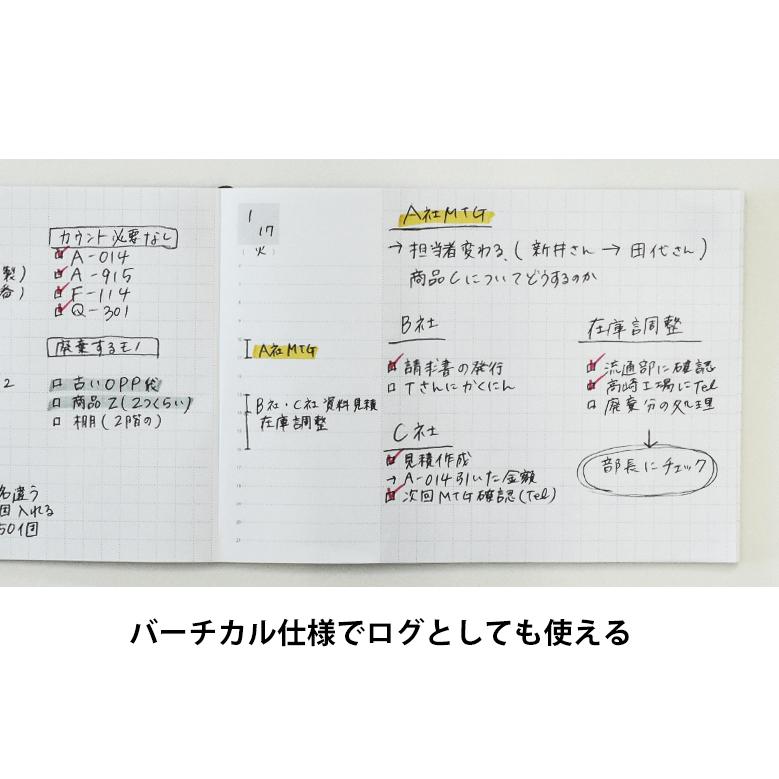 カウント必要なし
A-014
A-915
F-114
Q-301
製)
番)
廃棄するモノ
2
古いOPP袋
商品Z(2つくらい)
棚(2階の)
名違う
回入れる
50個
1
17
(火)
A社MTG
B社・C社資料見積
在庫調整
A社MTG
→担当者変わる、(新井さん→田代さん)
商品Cについてどうするのか
B社
請求書の発行
Tさんにかくにん
C社
見積作成
→A-014引いた金額
次回MTG確認(Tel)
在庫調整
流通部に確認
高崎工場にTel
廃棄分の処理
↓
部長にチェック
バーチカル仕様でログとしても使える